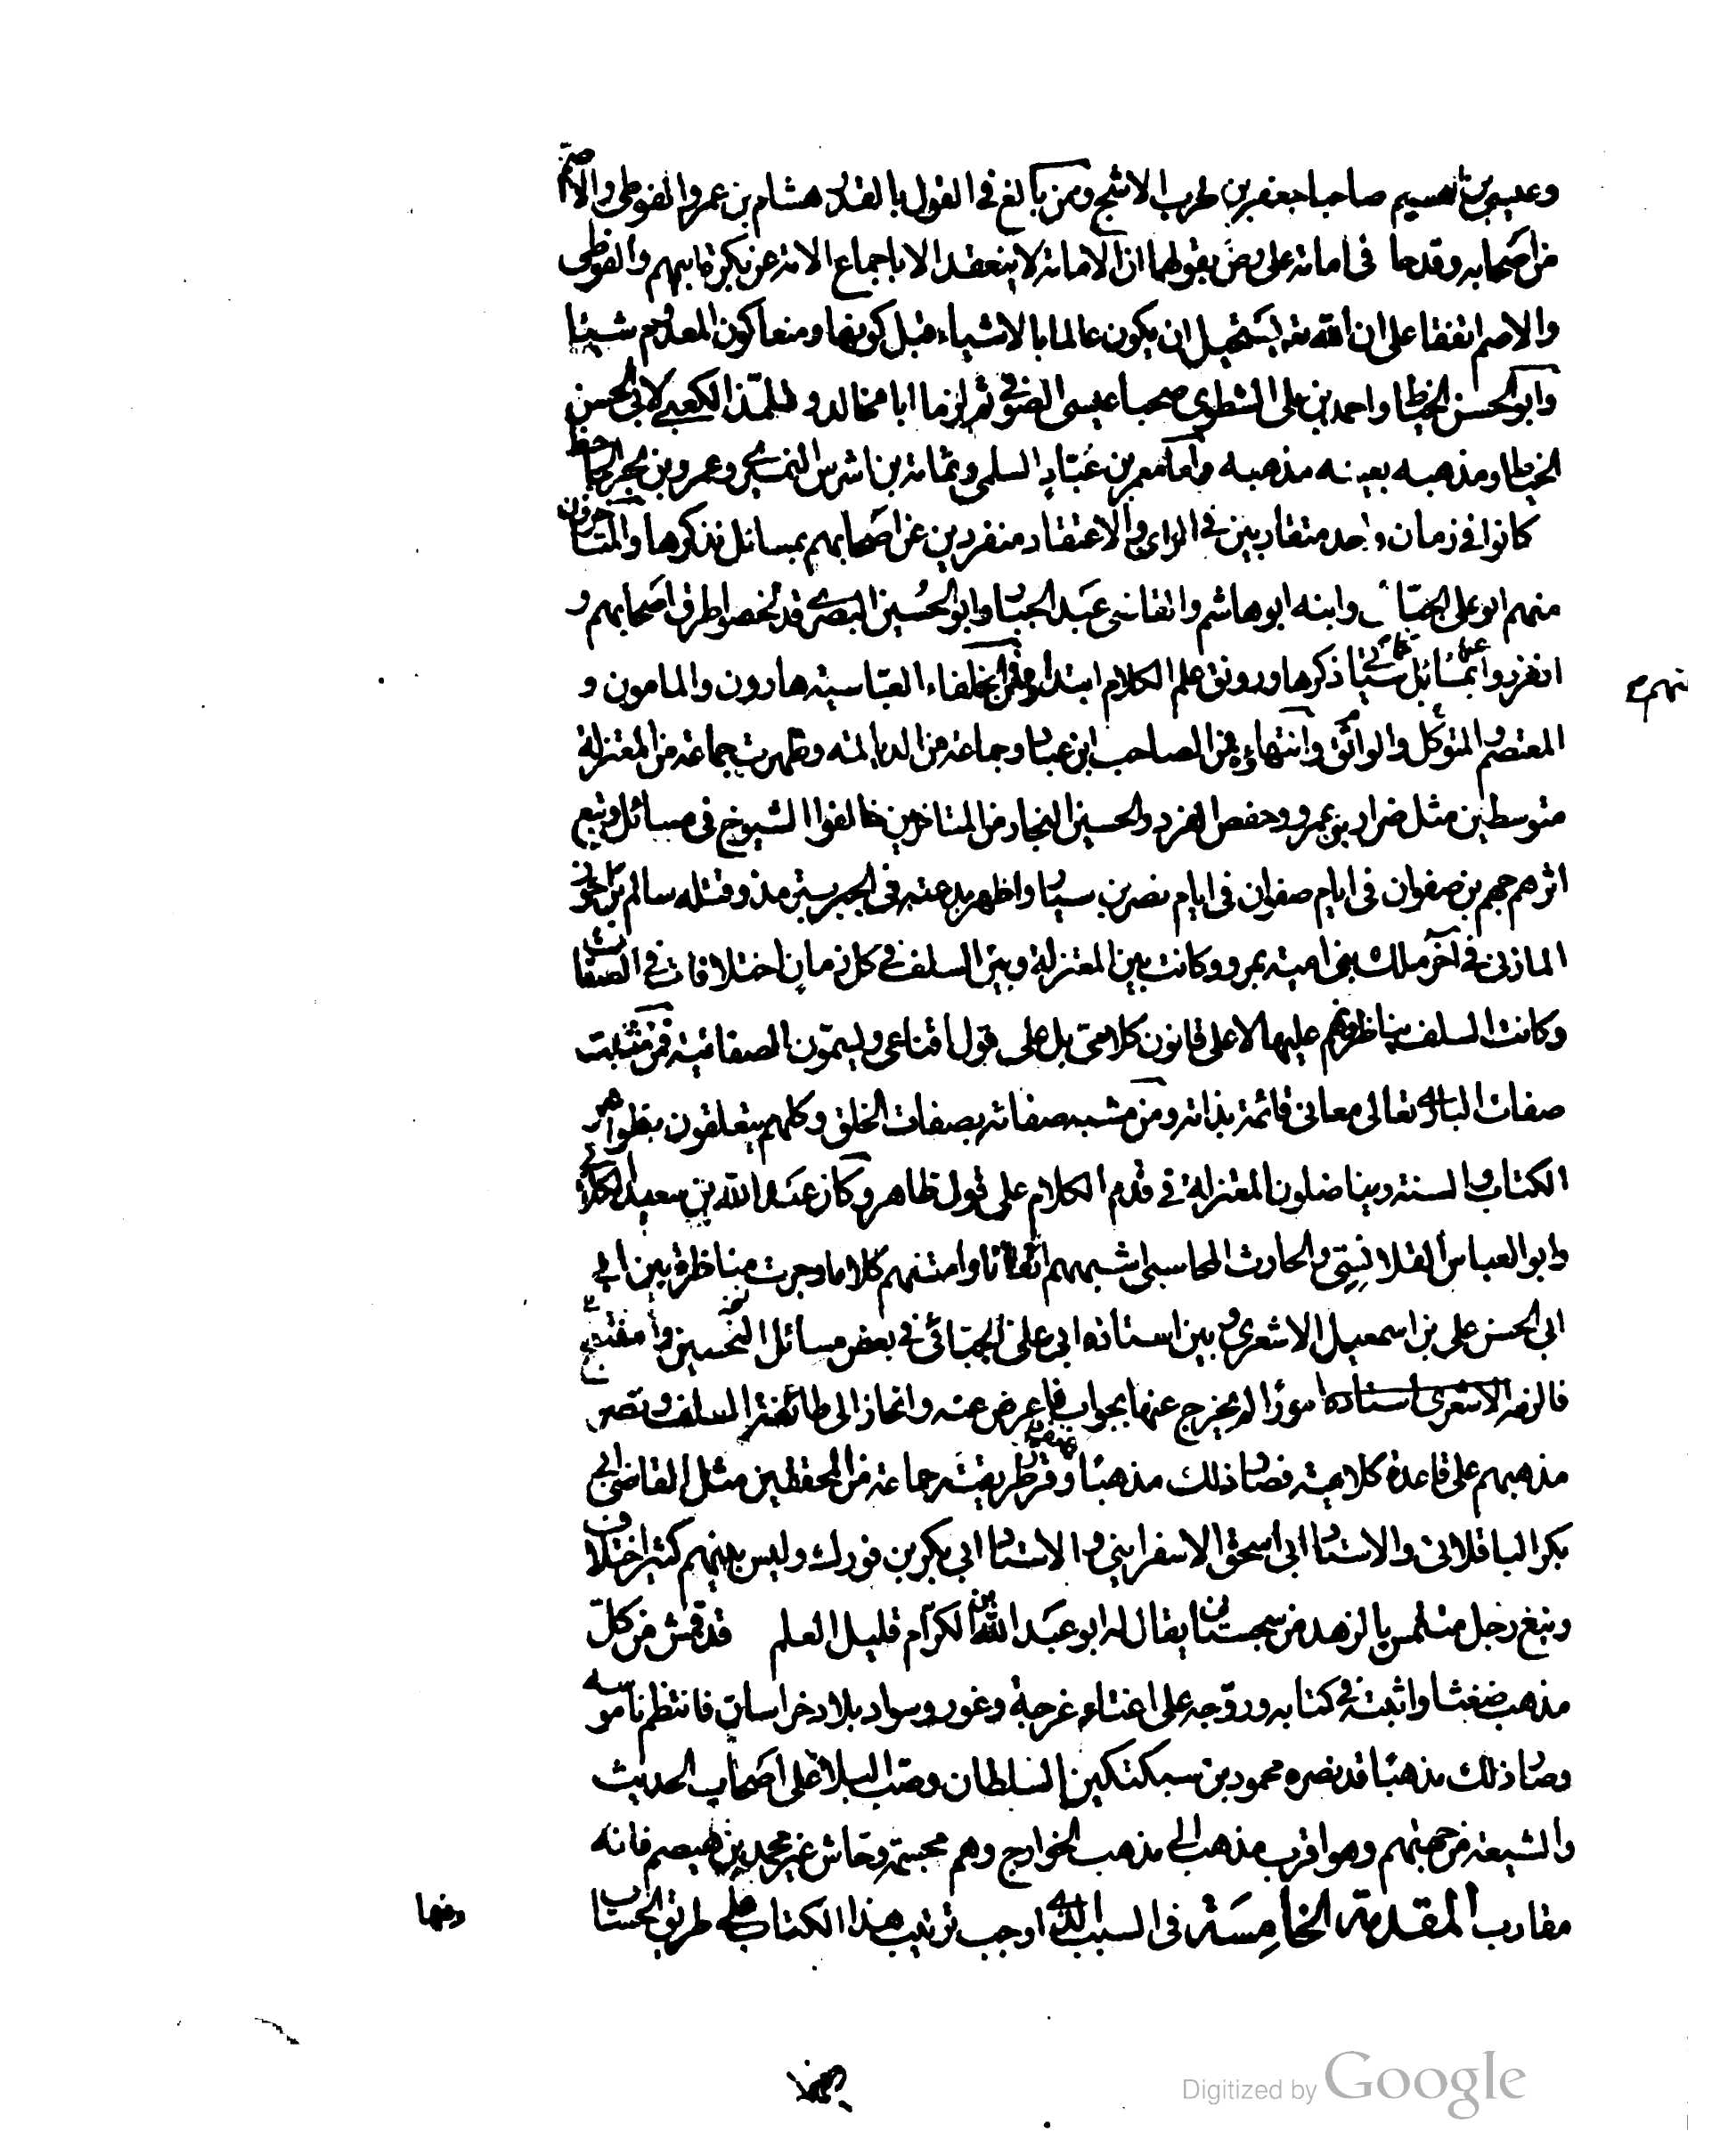 وعيسى بن الهيثم صاحبا جعفر بن حرب الاشج وممن بالغ في القول بالقدر هشام بن عمرو الفوطي والاصم
من اصحابه وقدحا في امامة علي رض بقولهما ان الامامة لا ينعقد الا باجماع الامة عن بكرة ابيهم والفوطي
والاصم اتفقا على ان الله تع يستحيل ان يكون عالما بالاشياء قبل كونها ومنعا كون المعدوم شيئا
وابو الحسن الخياط واحمد بن علي الشطوي صحبا عيسى الصوفي ثم لزما ابا مخالد وتلمذ الكعبي لابي الحسن
الخياط ومذهبه بعينه مذهبه واما معمر بن عباد السلمي وثمامة بن اشرس النميري وعمرو بن بحر الجاحظ
كانوا في زمان واحد متقاربين في الراي والاعتقاد منفردين عن اصحابهم بمسائل نذكرها والمتاخرون
منهم ابو علي الجبائي وابنه ابو هاشم والقاضي عبد الجبار وابو الحسين البصري قد لخصوا طرق اصحابهم و
انفردوا عنهم بمسائل سياتي ذكرها ورونق علم الكلام ابتداؤه فمن الخلفاء العباسية هارون والمامون و
المعتصم والمتوكل والواثق وانتهاؤه فمن الصاحب ابن عباد وجماعة من الديالمة وظهرت جماعة من المعتزلة
متوسطين مثل ضرار بن عمرو وحفص الفرد والحسين النجار من المتاخرين خالفوا الشيوخ في مسائل ونبع
اثرهم جهم بن صفوان في ايام صفوان في ايام نصر بن سيار واظهر بدعته في الجبر بترمذ وقتله سالم بن احوز
المازني في آخر ملك بني امية بمرو وكانت بين المعتزلة وبين السلف في كل زمان اختلافات في الصفات
وكانت السلف يناظرونهم عليها لا على قانون كلامي بل على قول اقناعي ويسمون الصفاتية فمن مثبت
صفات الباري تعالى معاني قائمة بذاته ومن مشبه صفاته بصفات الخلق وكلهم يتعلقون بظواهر
الكتاب والسنة ويناضلون المعتزلة في قدم الكلام على قول ظاهر وكان عبد الله بن سعيد الكلابي
وابو العباس القلانسي والحارث المحاسبي اشبههم اتقانا وامتنهم كلاما وجرت مناظرة بين ابي
ابي الحسن علي بن اسمعيل الاشعري وبين استاذه ابي علي الجبائي في بعض مسائل التحسين والتقبيح
فالزم الاشعري استاده امورا لم يخرج عنها بجواب فاعرض عنه وانحاز الى طائفة السلف ونصر
مذهبهم على قاعدة كلامية فصار ذلك مذهبا وقرر طريقته جماعة من المحققين مثل القاضي ابي
بكر الباقلاني والاستاد ابي اسحق الاسفرايني والاستاد ابي بكر بن فورك وليس بينهم كثير اختلاف
ونبغ رجل متلمس بالزهد من سجستان يقال له ابو عبد الله بن الكرام قليل العلم قد قمش من كل
مذهب ضغثا واثبته في كتابه وروجه على اغتام غرجة وغور وسواد بلاد خراسان فانتظم ناموسه
وصار ذلك مذهبا قد نصره محمود بن سبكتكين السلطان وصب البلاء على اصحاب الحديث
والشيعة من جهتهم وهو اقرب مذهب الى مذهب الخوارج وهم مجسمة وحاش غير محمد بن هيصم فانه
مقارب المقدمة الخامسة في السبب الذي اوجب ترتيب هذا الكتاب على طريق الحساب
وفيها
Digitized by Google